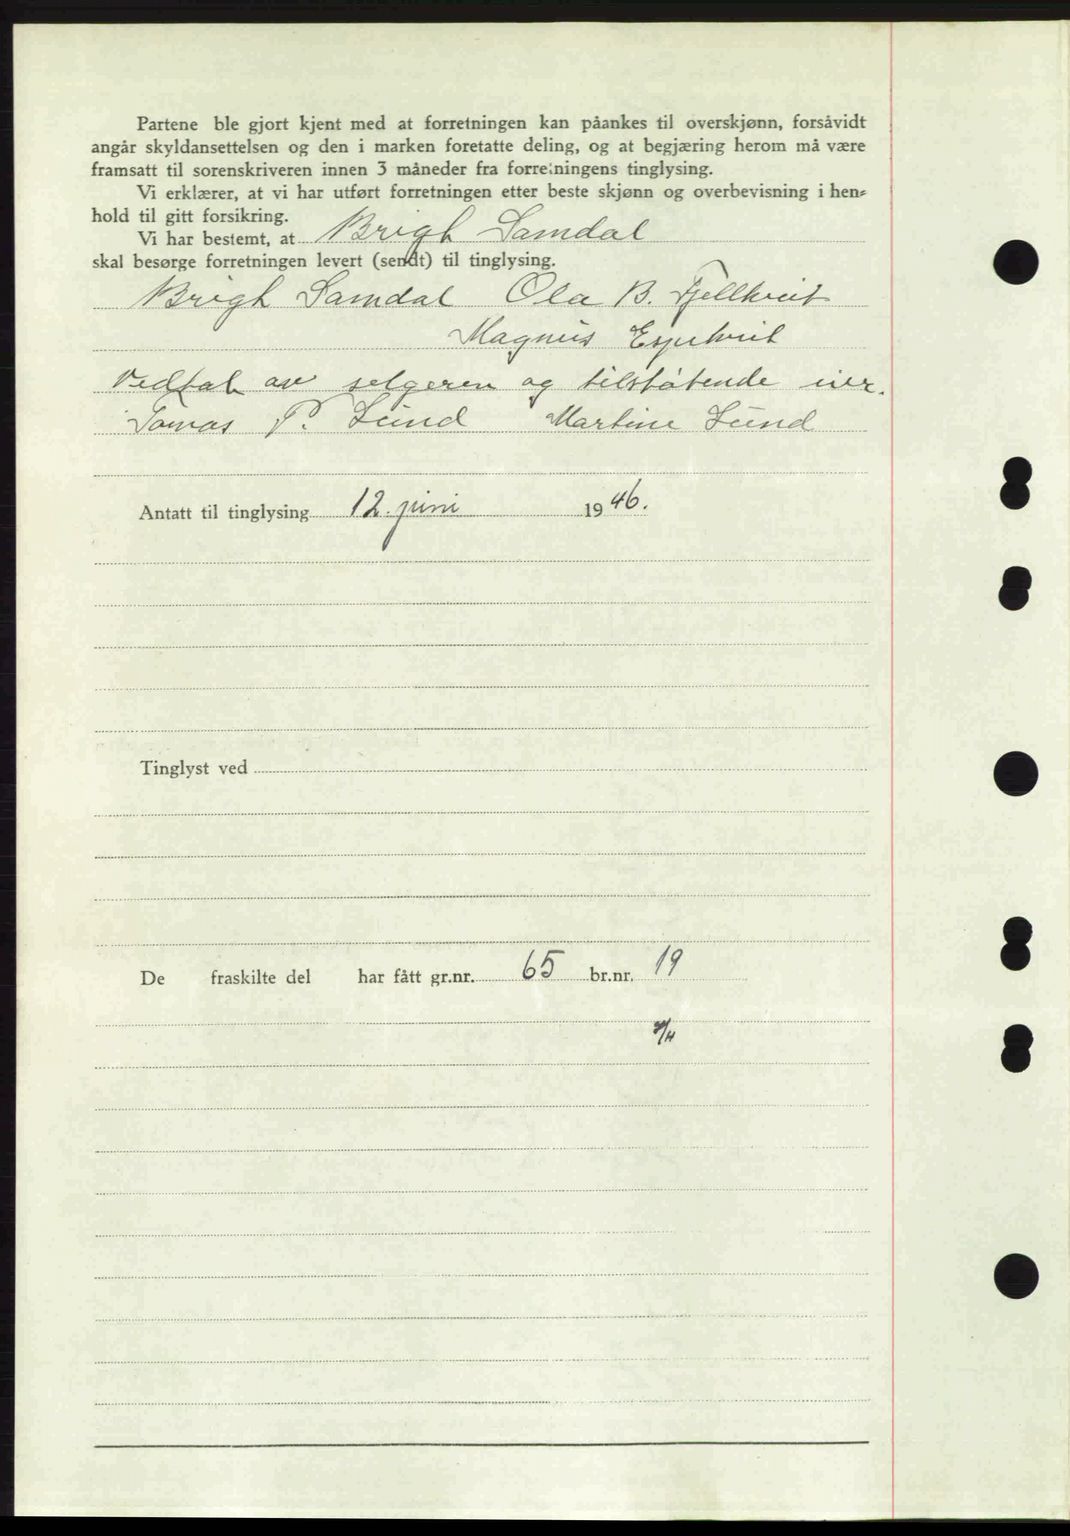 Partene ble gjort kjent med at forretningen kan påankes til overskjønn, forsåvidt
angår skyldansettelsen og den i marken foretatte deling, og at begjæring herom må være
framsatt til sorenskriveren innen 3 måneder fra forretningens tinglysing.
Vi erklærer, at vi har utført forretningen etter beste skjønn og overbevisning i hen-
hold til gitt forsikring.
Vi har bestemt, at Brigh Samdal
skal besørge forretningen levert (sendt) til tinglysing.
Brigh Samdal Ola B. Fjellkveit
Magnus
Vedtak av selgeren og tilstøtende
Tomas P. Lund Martine Lund
Antatt til tinglysing 12. juni 1946.
Tinglyst ved
De fraskilte del har fått gr.nr. 65 br.nr. 19